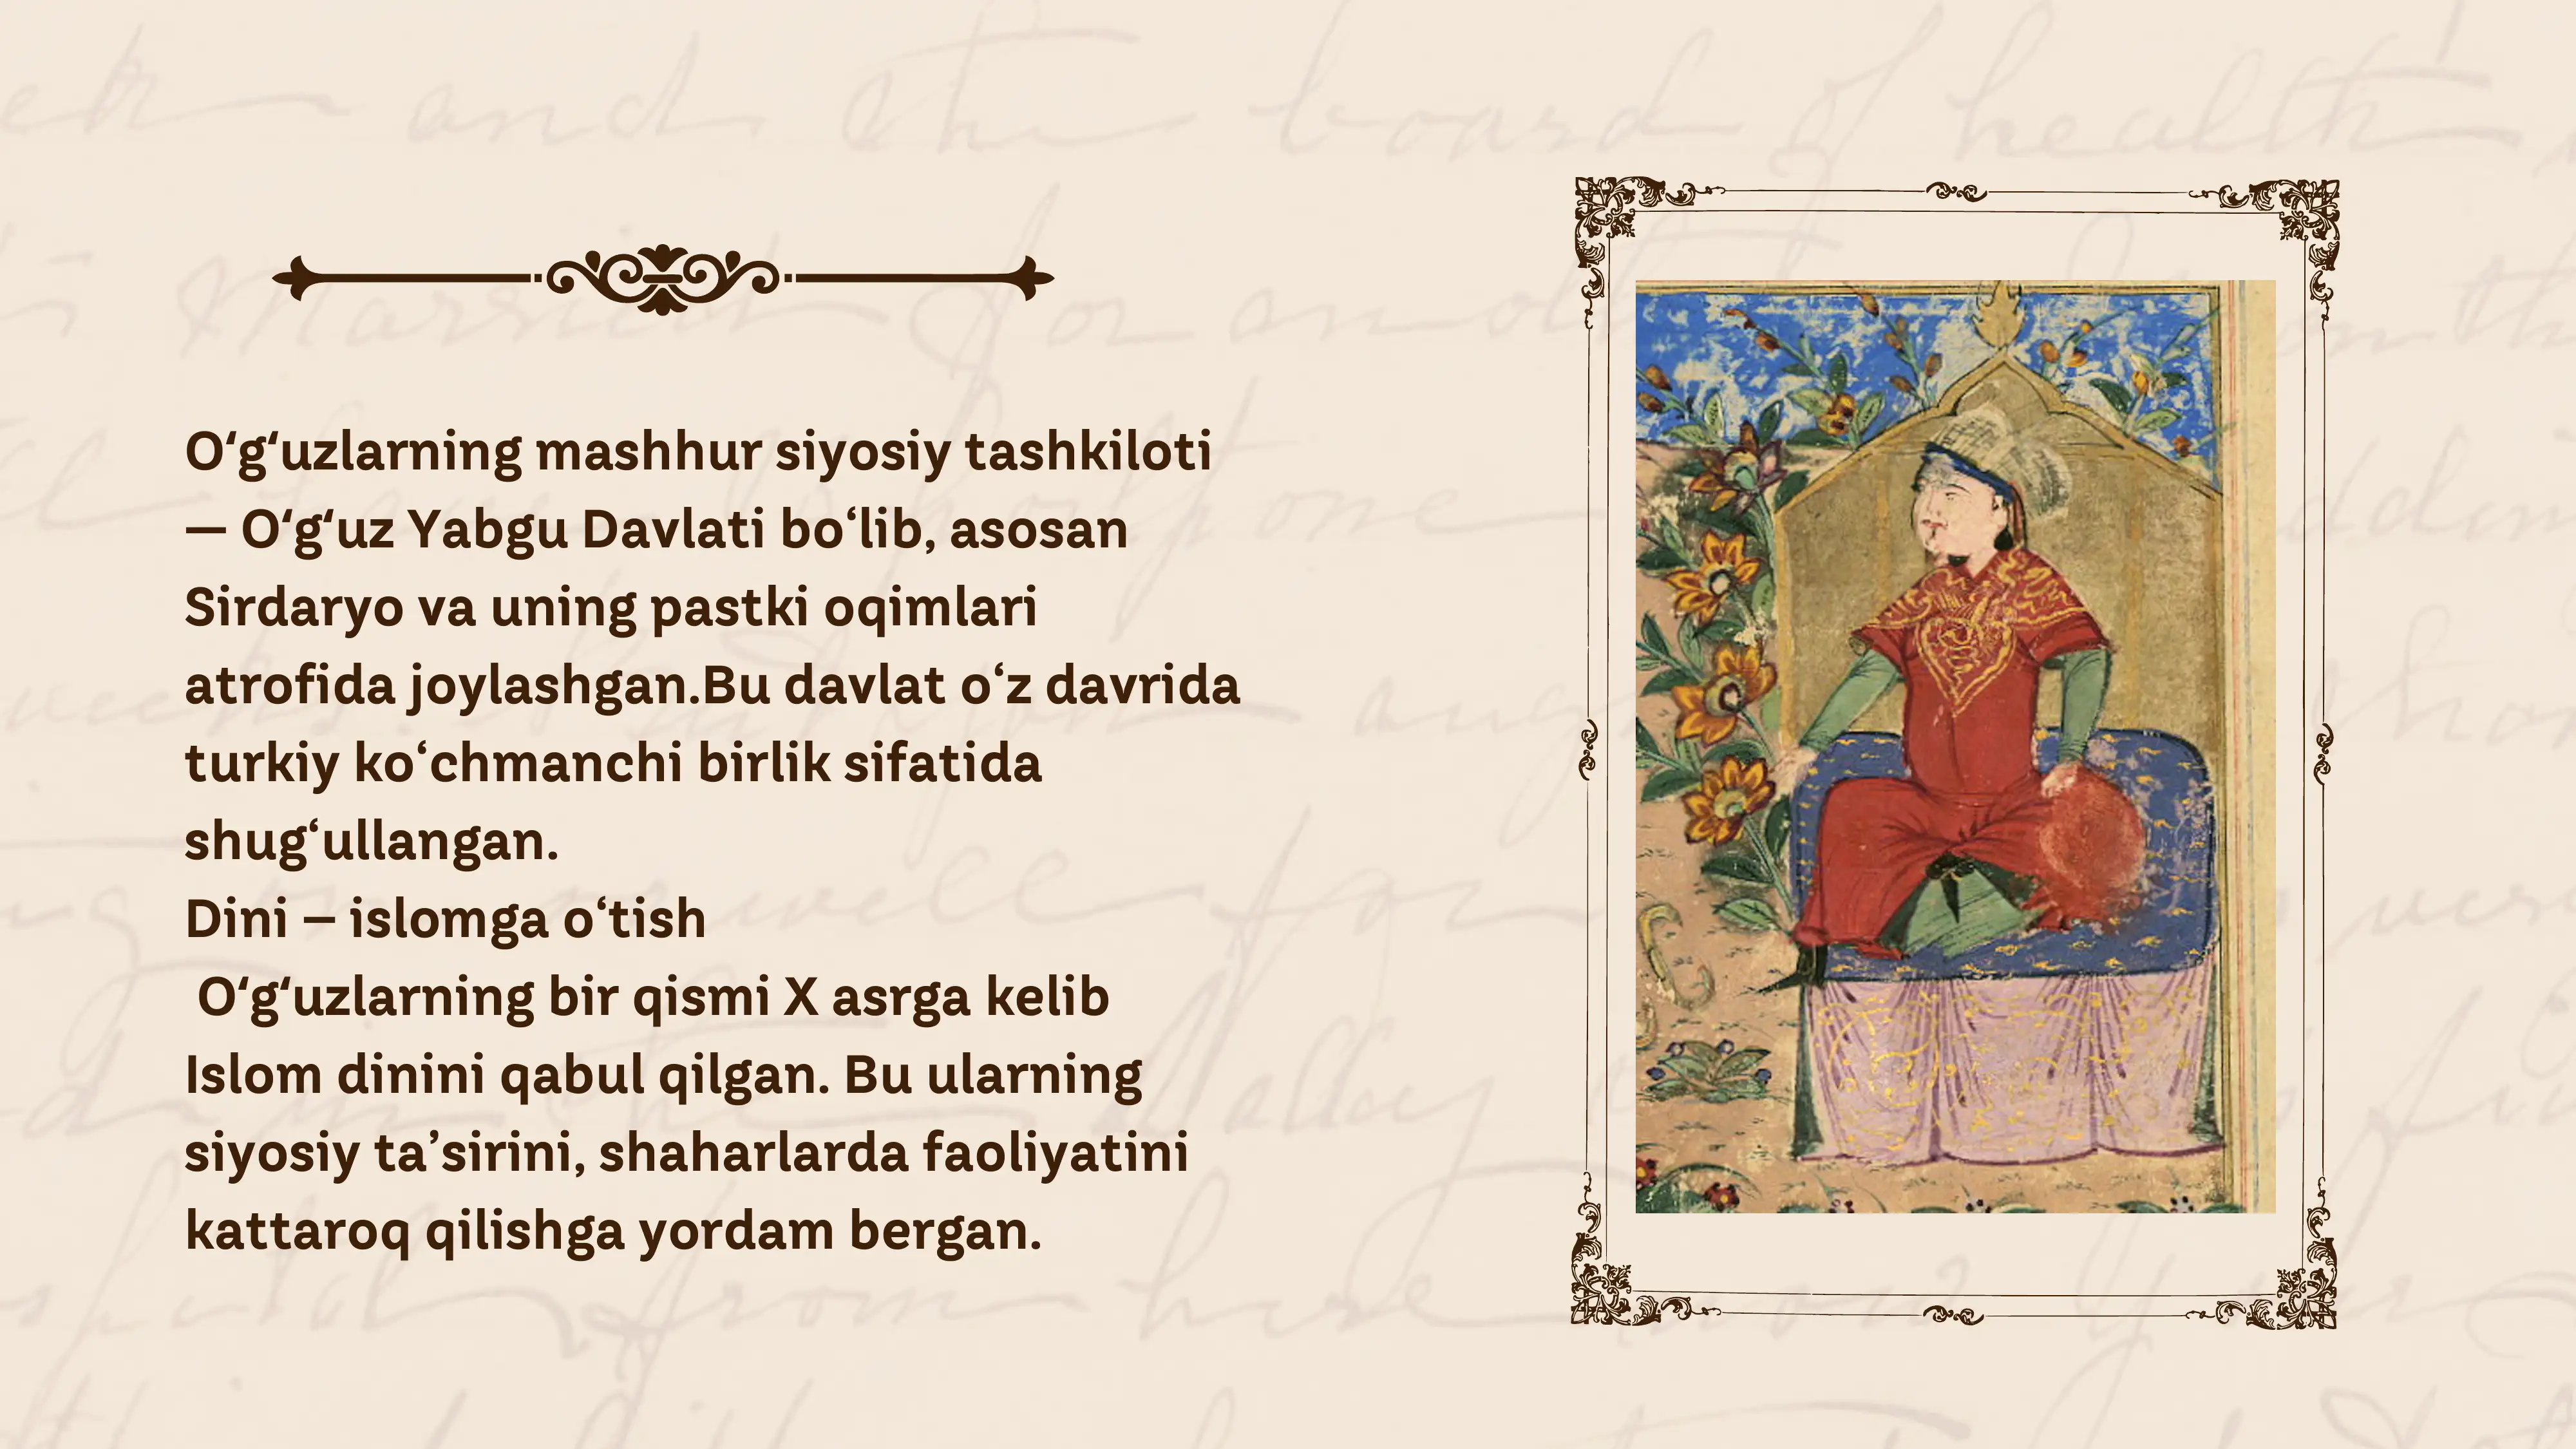 O‘g‘uzlarning mashhur siyosiy tashkiloti
— O‘g‘uz Yabgu Davlati bo‘lib, asosan
Sirdaryo va uning pastki oqimlari
atrofida joylashgan.Bu davlat o‘z davrida
turkiy ko‘chmanchi birlik sifatida
shug‘ullangan.
Dini — islomga o‘tish
O‘g‘uzlarning bir qismi X asrga kelib
Islom dinini qabul qilgan. Bu ularning
siyosiy ta’sirini, shaharlarda faoliyatini
kattaroq qilishga yordam bergan.